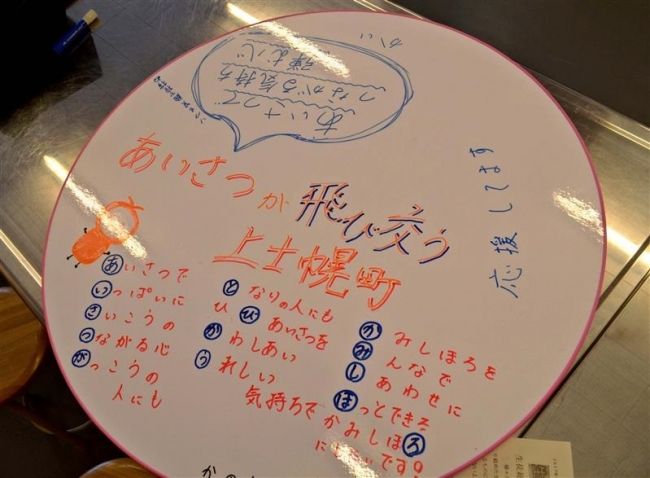 あいさつで
つながる気持ち
弾む心
あいさつが飛び交う
上士幌町
応援してます
あいさつで
いっぱいに
さいこうの
つながる心
がっこうの
人にも
となりの人にも
ひびあいさつを
かわしあい
うれしい
気持ちで
かみしほろを
みんなで
しあわせに
ほっとできる
かみしほろ
にしたいです!